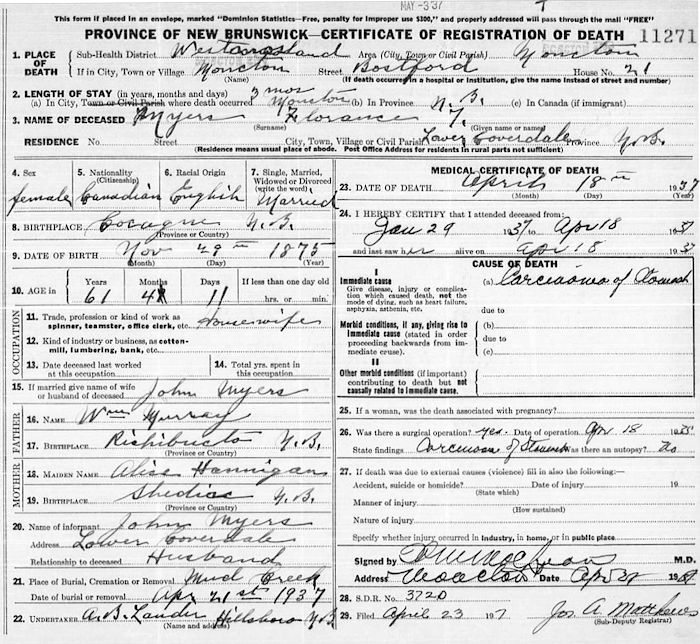 MAY -3 '37
This form if placed in an envelope, marked "Dominion Statistics—Free, penalty for improper use $300," and properly addressed will pass through the mail "FREE"
PROVINCE OF NEW BRUNSWICK—CERTIFICATE OF REGISTRATION OF DEATH 11271
1. PLACE OF DEATH
Sub-Health District Westmorland Area (City, Town or Civil Parish) Moncton
If in City, Town or Village Moncton Street Botsford House No. 21
(Name) (If death occurred in a hospital or Institution, give the name instead of street and number)
2. LENGTH OF STAY (in years, months and days) 3 mos
(a) In City, Town or Civil Parish where death occurred Moncton (b) In Province N.B. (c) In Canada (if immigrant)
3. NAME OF DECEASED Myers Florance F.
(Surname) (Given name or names)
RESIDENCE No. Street City, Town, Village or Civil Parish Lower Coverdale Province N.B.
(Residence means usual place of abode. Post Office Address for residents in rural parts not sufficient)
4. Sex female
5. Nationality (Citizenship) Canadian
6. Racial Origin English
7. Single, Married, Widowed or Divorced (write the word) Married
8. BIRTHPLACE Cocagne N.B.
(Province or Country)
9. DATE OF BIRTH Nov 29th 1875
(Month) (Day) (Year)
10. AGE in Years Months Days If less than one day old
61 4 11 hrs. or min.
OCCUPATION
11. Trade, profession or kind of work as spinner, teamster, office clerk, etc. Housewife
12. Kind of industry or business, as cotton-mill, lumbering, bank, etc.
13. Date deceased last worked at this occupation
14. Total yrs. spent in this occupation.
15. If married give name of wife or husband of deceased John Myers
FATHER
16. NAME Wm Murray
17. BIRTHPLACE Richibucto N.B.
(Province or Country)
MOTHER
18. MAIDEN NAME Alice Hannigan
19. BIRTHPLACE Shediac N.B.
(Province or Country)
20. Name of informant John Myers
Address Lower Coverdale
Relationship to deceased Husband
21. Place of Burial, Cremation or Removal Mud Creek
Date of burial or removal Apr 21st 1937
22. UNDERTAKER A.B. Lauder Hillsboro N.B.
(Name and address)
MEDICAL CERTIFICATE OF DEATH
23. DATE OF DEATH April 18th 1937
(Month) (Day) (Year)
24. I HEREBY CERTIFY that I attended deceased from:
Jan 29 1937 to Apr 18 1937
and last saw her alive on Apr 18 193
CAUSE OF DEATH
I
Immediate cause (a) Carcinoma of Stomach
Give disease, injury or complication which caused death, not the mode of dying, such as heart failure, asphyxia, asthenia, etc.
due to
Morbid conditions, if any, giving rise to immediate cause (stated in order proceeding backwards from immediate cruse).
(b)
due to
(c)
II
Other morbid conditions (if important) contributing to death but not causally related to immediate cause.
25. If a woman, was the death associated with pregnancy?
26. Was there a surgical operation? yes. Date of operation Apr 18 19
State findings Carcinoma of Stomach Was there an autopsy? No
27. If death was due to external causes (violence) fill in also the following:—
Accident, suicide or homicide? Date of injury 19
(State which)
Manner of injury
(How sustained)
Nature of injury
Specify whether injury occurred in Industry, in home, or in public place
Signed by M.D.
Address Moncton Date Apr 19
28. S.D.R. No. 3720
29. Filed April 23 197 Jos A Matthews
(Sub-Deputy Registrar)